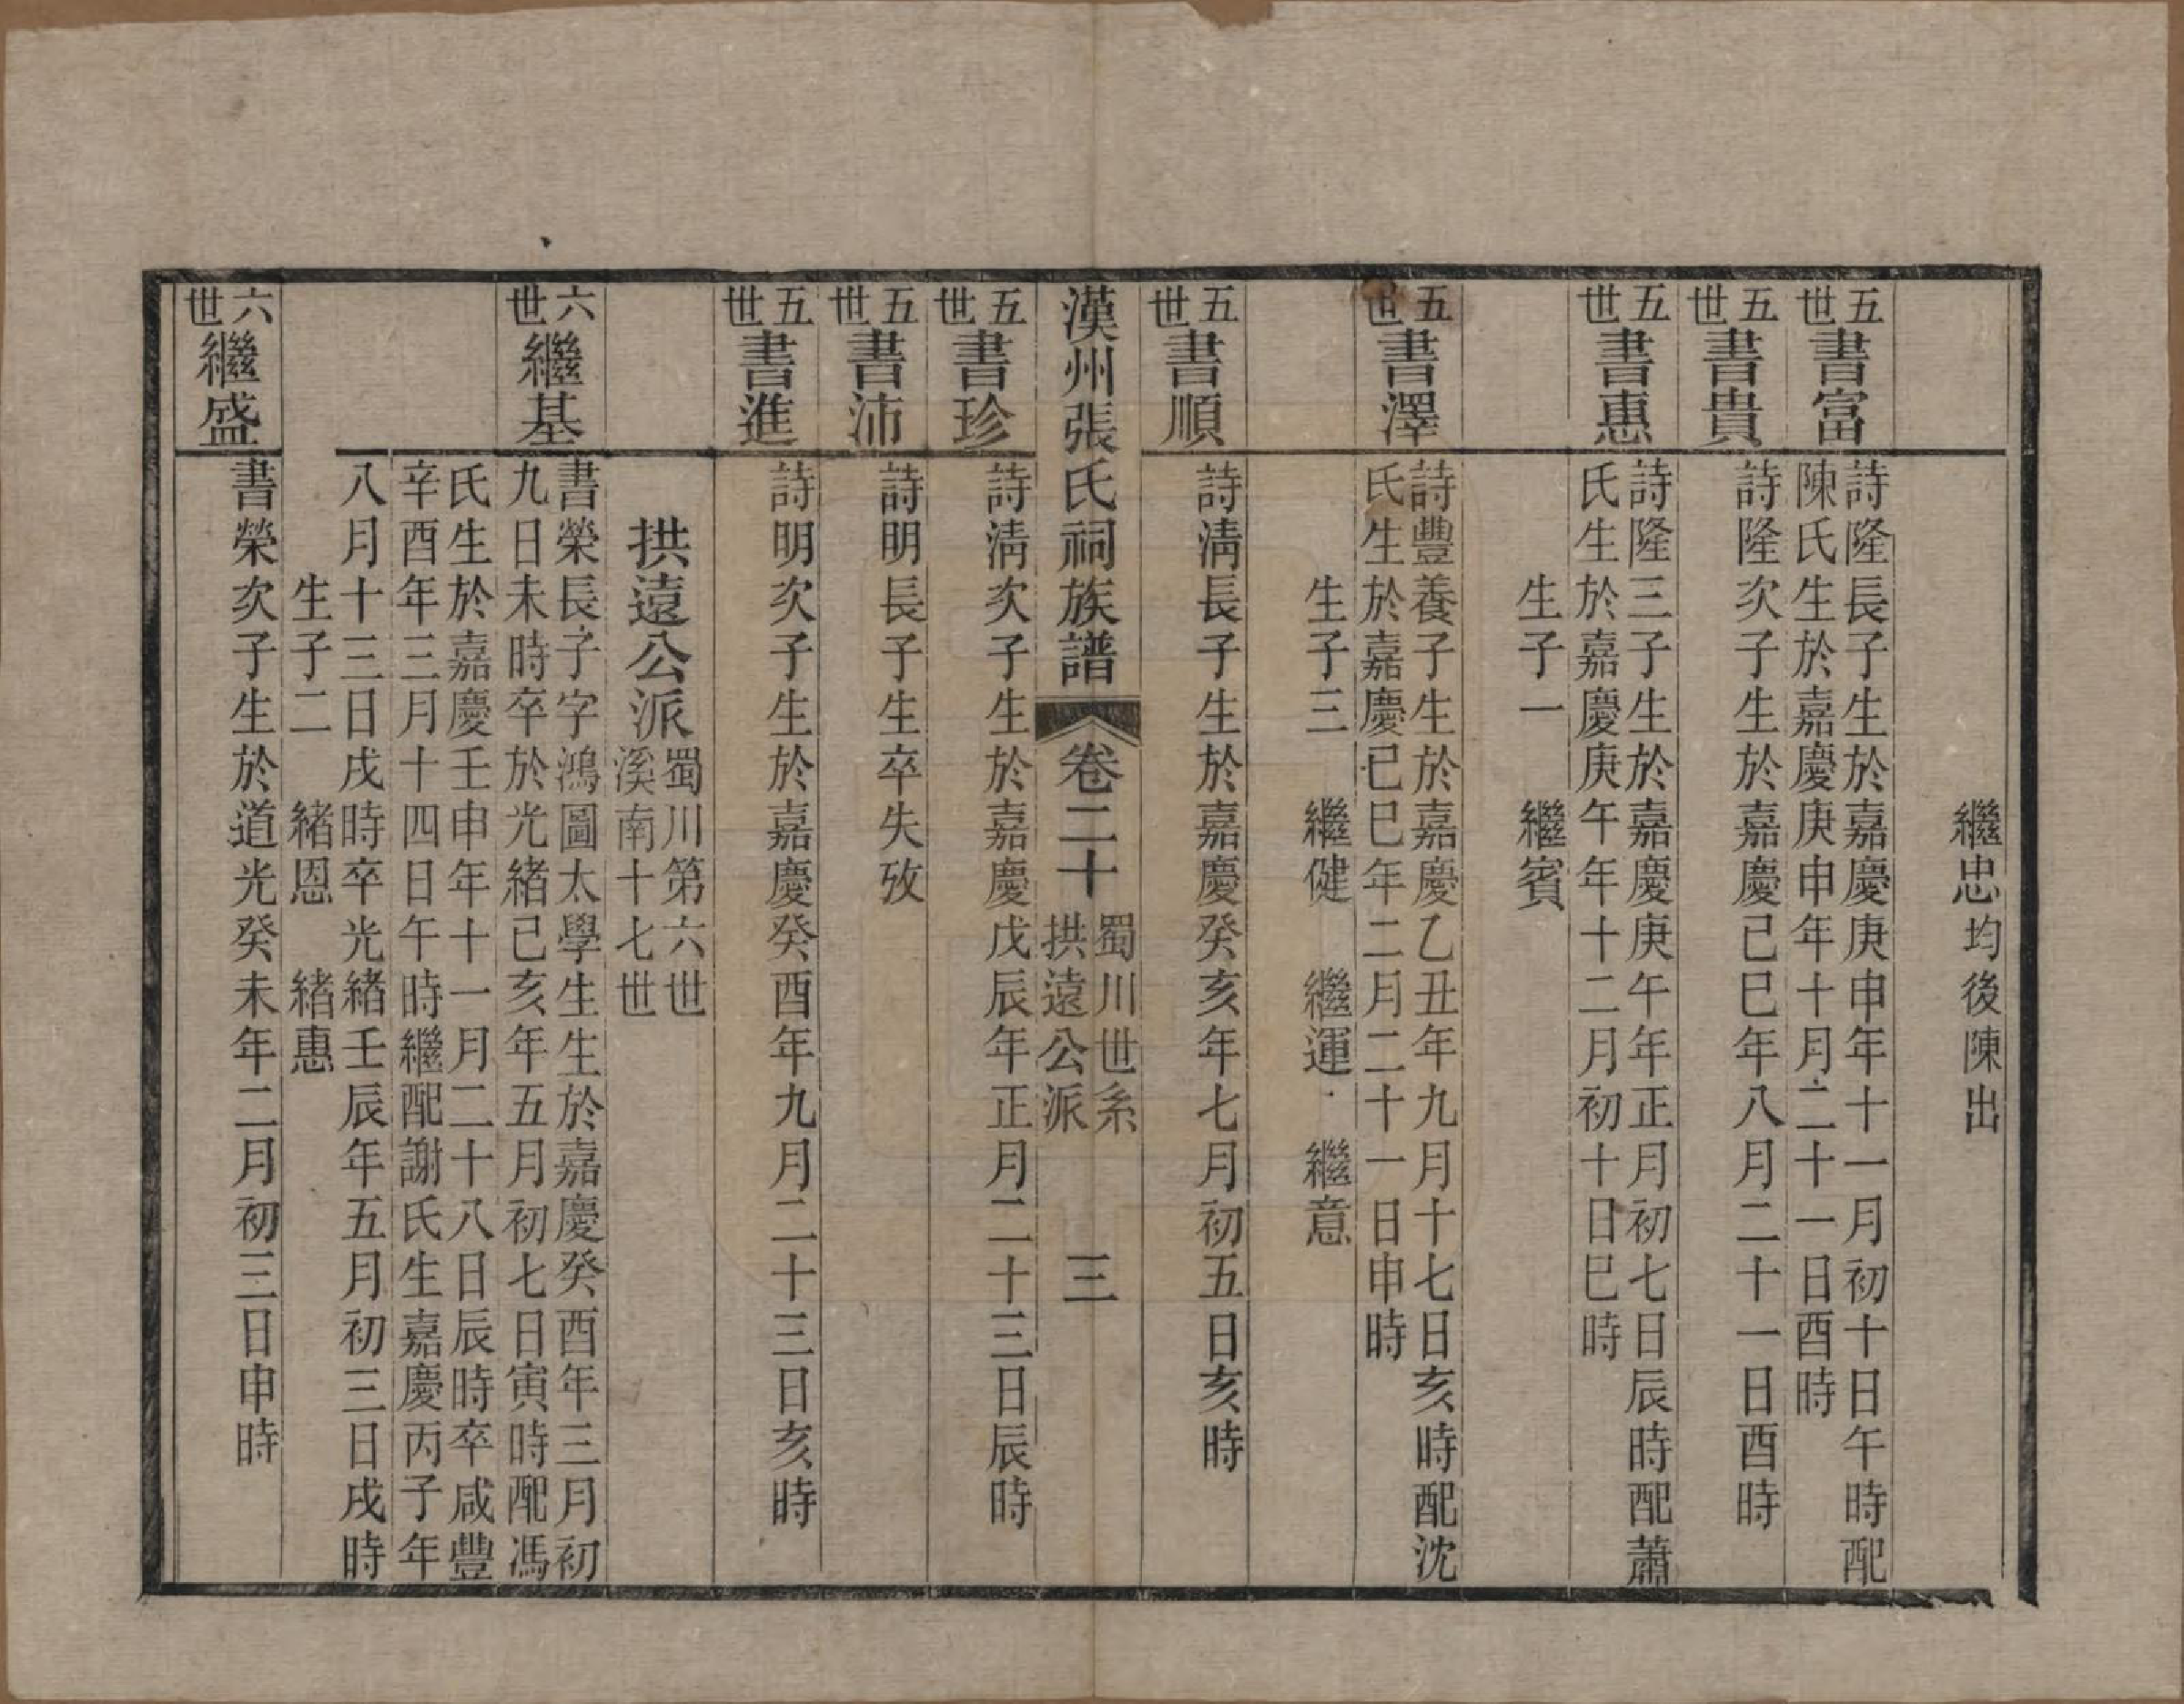 繼忠均後陳出
五世書富
詩隆長子生於嘉慶庚申年十一月初十日午時配
陳氏生於嘉慶庚申年十月二十一日酉時
五世書貴
詩隆次子生於嘉慶己巳年八月二十一日酉時
五世書惠
詩隆三子生於嘉慶庚午年正月初七日辰時配蕭
氏生於嘉慶庚午年十二月初十日巳時
生子一 繼賓
五世書澤
詩豐養子生於嘉慶乙丑年九月十七日亥時配沈
氏生於嘉慶己巳年二月二十一日申時
生子三 繼健 繼運 繼意
五世書順
詩淸長子生於嘉慶癸亥年七月初五日亥時
漢州張氏祠族譜 卷二十 蜀川世系 拱遠公派 三
五世書珍
詩淸次子生於嘉慶戊辰年正月二十三日辰時
五世書沛
詩明長子生卒失攷
五世書進
詩明次子生於嘉慶癸酉年九月二十三日亥時
拱遠公派 蜀川第六世 溪南十七世
六世繼基
書榮長子字鴻圖太學生生於嘉慶癸酉年三月初
九日未時卒於光緒己亥年五月初七日寅時配馮
氏生於嘉慶壬申年十一月二十八日辰時卒咸豐
辛酉年三月十四日午時繼配謝氏生嘉慶丙子年
八月十三日戌時卒光緒壬辰年五月初三日戌時
生子二 緒恩 緒惠
六世繼盛
書榮次子生於道光癸未年二月初三日申時